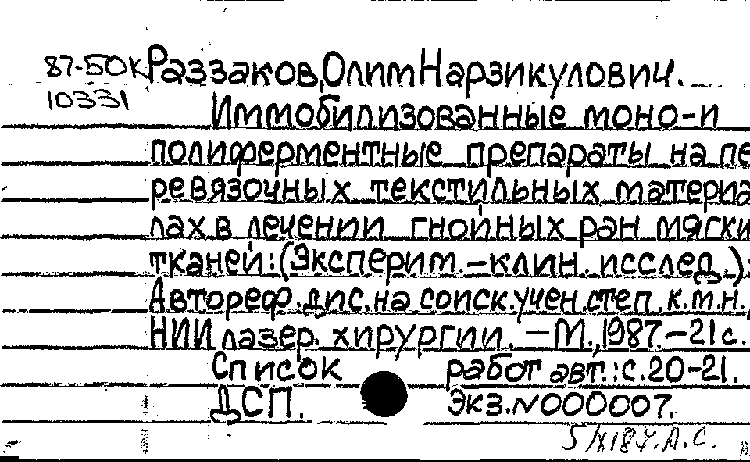 87-50К Раззаков, Олим Нарзикулович.
10331
Иммобилизованные моно-и
полиферментные препараты на пе
ревязочных текстильных материа
лах в лечении гнойных ран мягки
тканей: (Эксперим.-клин. исслед.):
Автореф. дис. на соиск. учен. степ. к.м.н.,
НИИ лазер. хирургии. - М., 1987.-21 с.
Список работ авт.: с. 20-21.
ДСП. Экз. N000007.